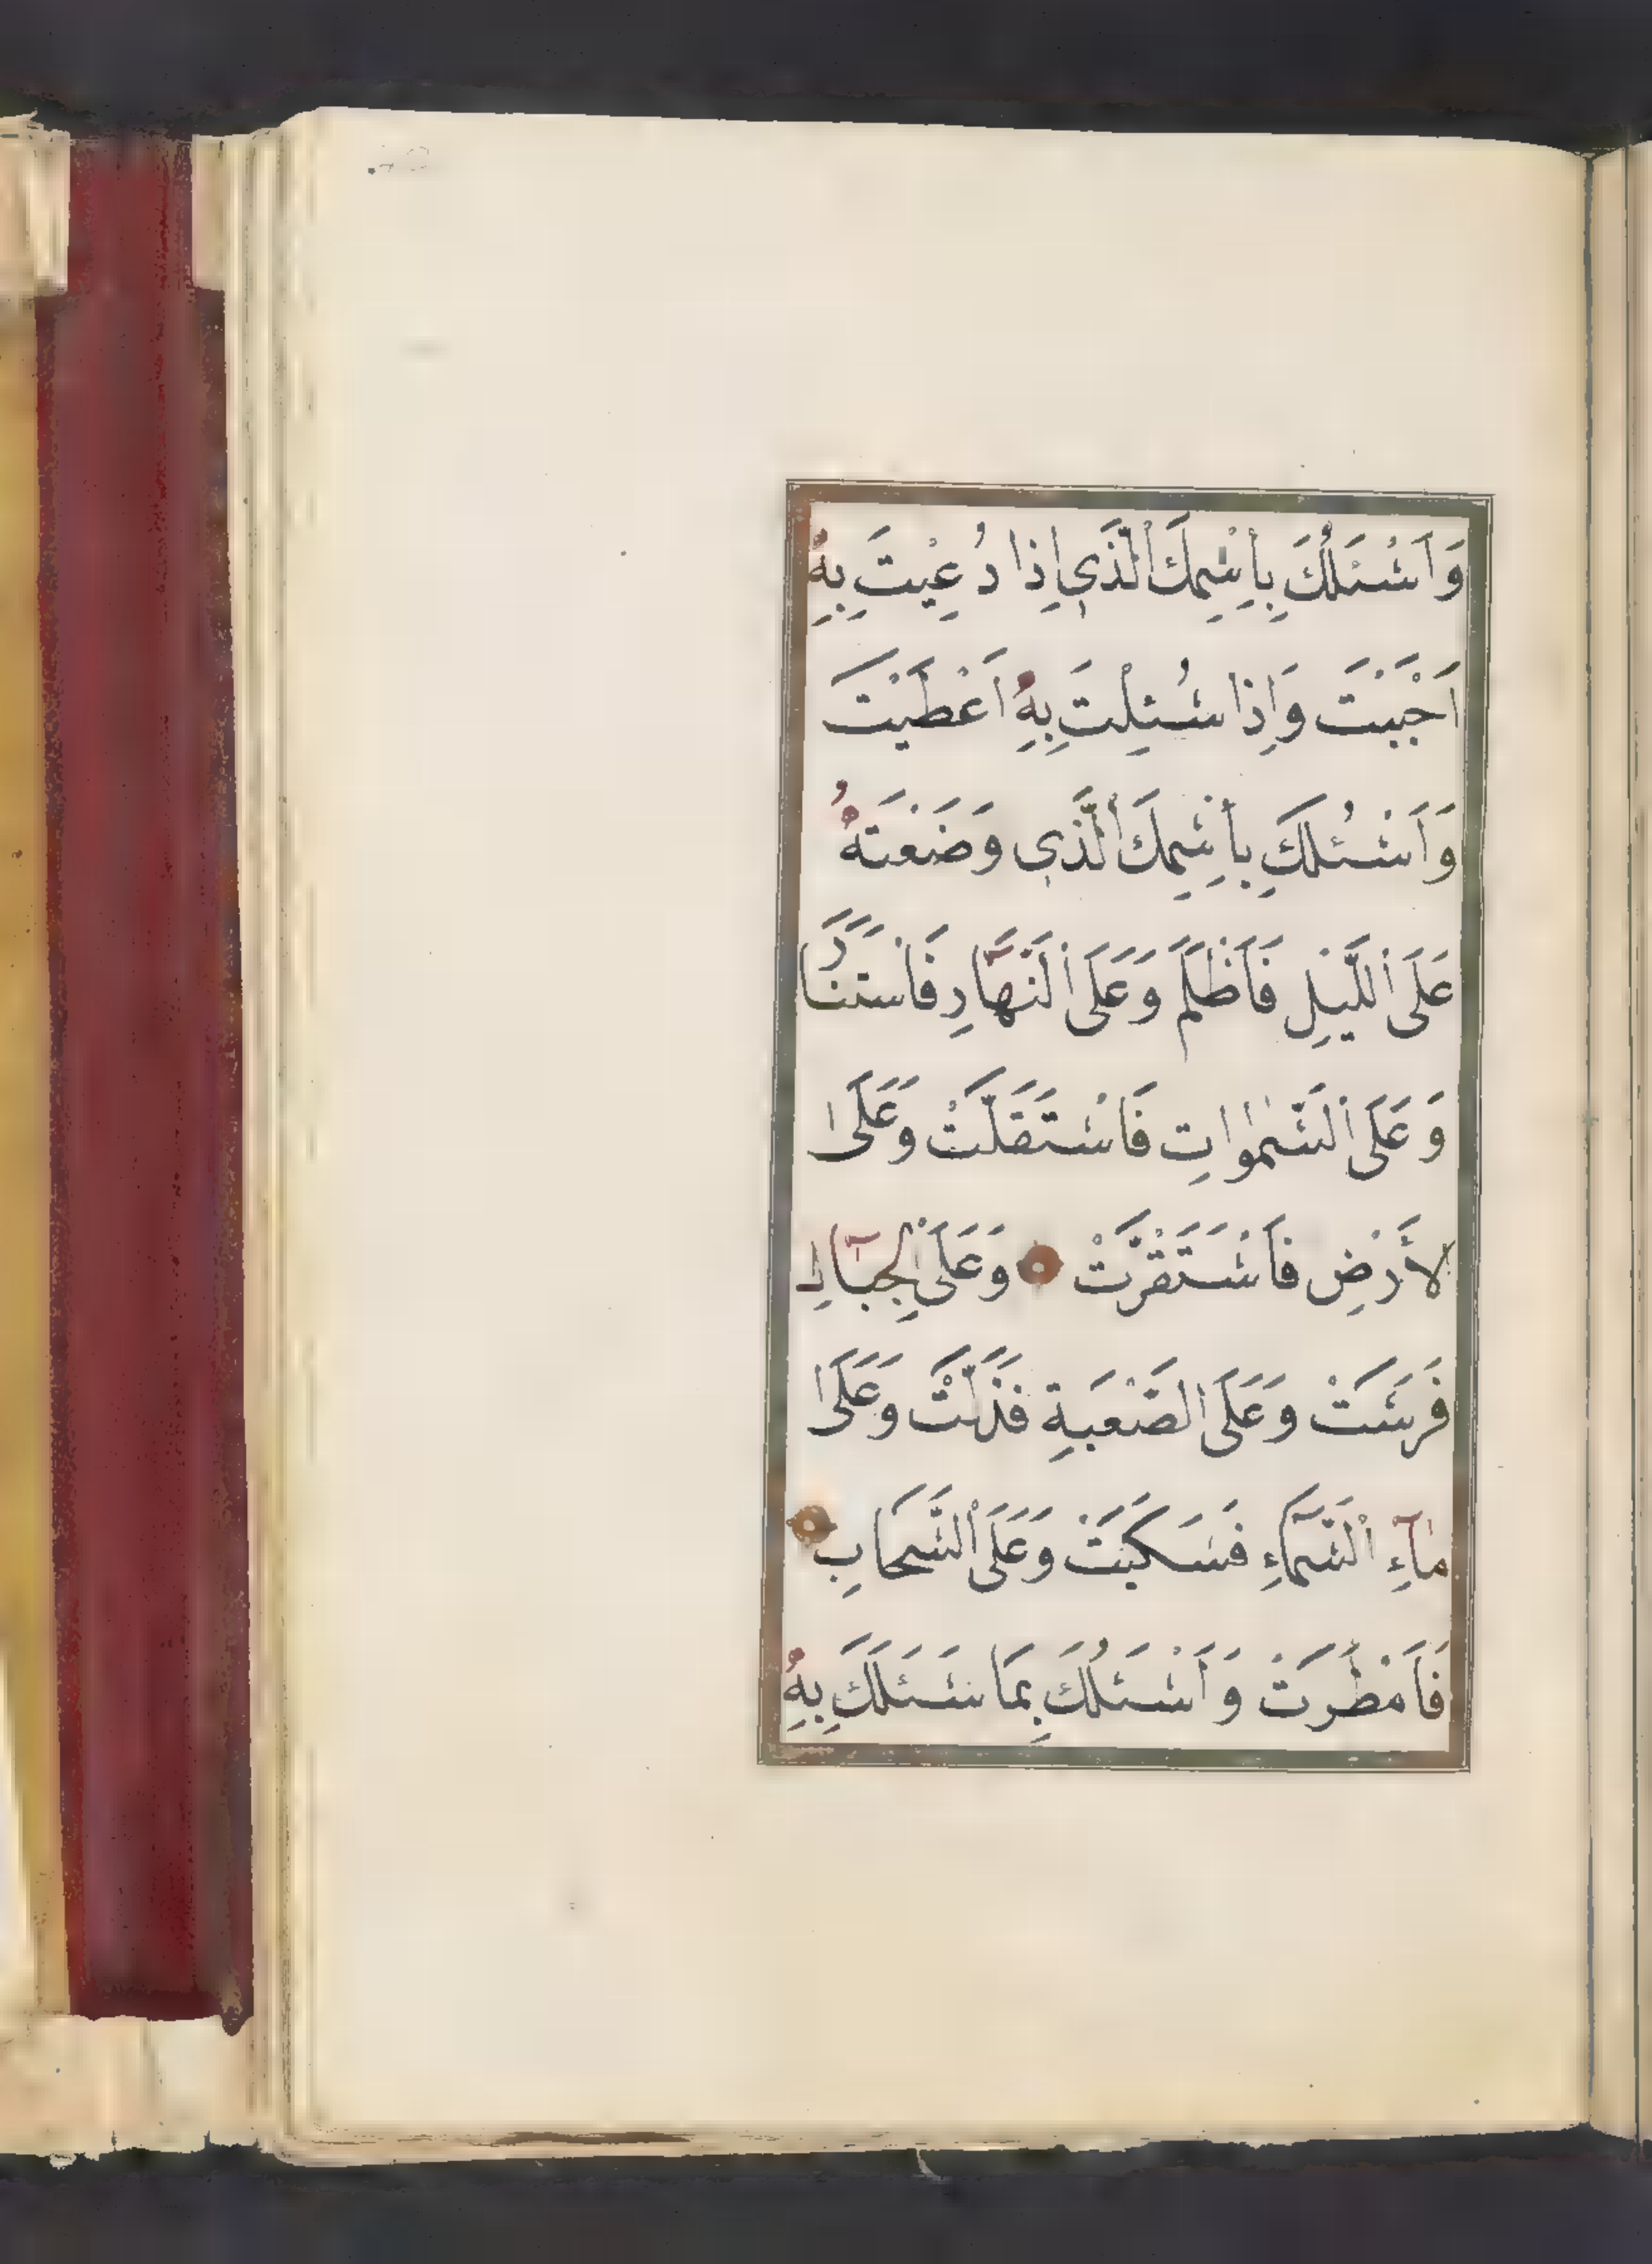 وَاَسْئَلُكَ بِاِسْمِكَ الَّذٖي اِذَا دُعِيْتَ بِهٖ
اَجَبْتَ وَاِذَا سُئِلْتَ بِهٖ اَعْطَيْتَ
وَاَسْئُلُكَ بِاِسْمِكَ الَّذٖي وَضَعْتَهُ
عَلَى اللَّيْلِ فَاَظْلَمَ وَعَلَى النَّهَارِ فَاسْتَنَارَ
وَعَلَى السَّمٰوَاتِ فَاسْتَقَلَّتْ وَعَلَى ا
لاَرْضِ فَاسْتَقَرَّتْ وَعَلَى الْجِبَالِ
فَرَسَتْ وَعَلَى الصَّعْبَةِ فَذَلَّتْ وَعَلَى
مَآءِ السَّمَآءِ فَسَكَبَتْ وَعَلَى السَّحَابِ
فَاَمْطَرَتْ وَاَسْئَلُكَ بِمَا سَئَلَكَ بِهٖ